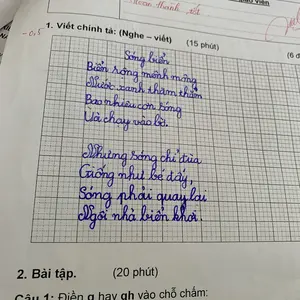 viên
-0,5
1. Viết chính tả: (Nghe – viết) (15 phút) (6 đ
Sóng biển
Biển rộng mênh mông
Nước xanh thăm thẳm
Bao nhiêu con sóng
Ùa chạy vào bờ.
Nhưng sóng chỉ đùa
Giống như bé đấy,
Sóng phải quay lại
Ngôi nhà biển khơi.
2. Bài tập. (20 phút)
Câu 1: Điền g hay gh vào chỗ chấm: